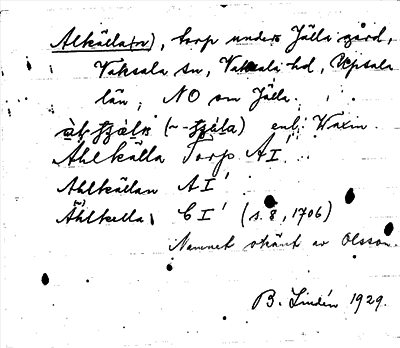 Alkälla(n), torp under Jälla gård,
Vaksala sn, Vaksala hd, Upsala
län, NO om Jälla.
enl. Waxin.
Ahlkälla Torp AI
Ahlkällan AI
Åhlkella CI (s. 8, 1706)
Namnet okänt av Olsson.
B. Lindén 1929.